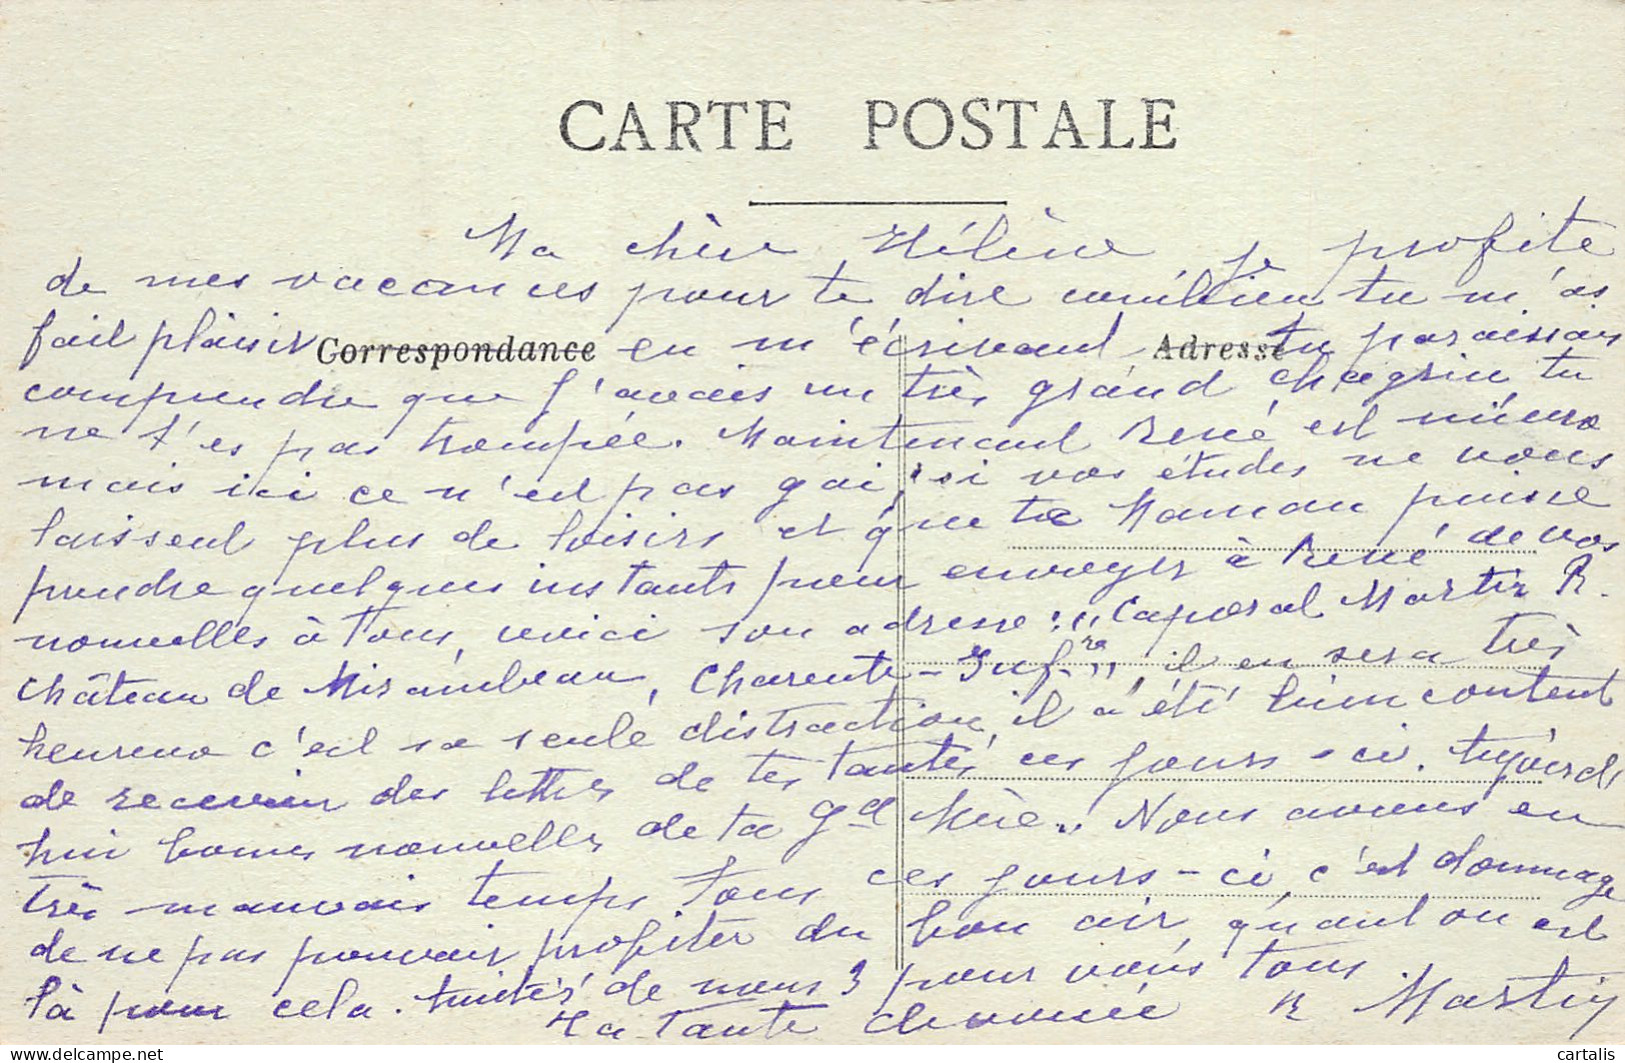 CARTE POSTALE
Ma chère Hélène je profite
de mes vacances pour te dire combien tu m'as
fait plaisir en m'écrivant, tu paraissais
Correspondance Adresse
comprendre que j'avais un très grand chagrin tu
ne t'es pas trompée. Maintenant René est mieux
mais ici ce n'est pas gai, si vos études ne vous
laissent plus de loisirs et que ta Maman puisse
prendre quelques instants pour envoyer à René de vos
nouvelles à tous, voici son adresse : "Caporal Martin R.
Château de Mirambeau, Charente-Infre", il en sera très
heureux c'est sa seule distraction, il a été bien content
de recevoir des lettres de tes tantes ces jours-ci. Aujourd'
hui bonnes nouvelles de ta Gd Mère. Nous avons eu
très mauvais temps tous ces jours-ci, c'est dommage
de ne pas pouvoir profiter du bon air, quant on est
là pour cela. de nous 3 pour vous tous
Ta Tante dévouée R Martin
cartalis